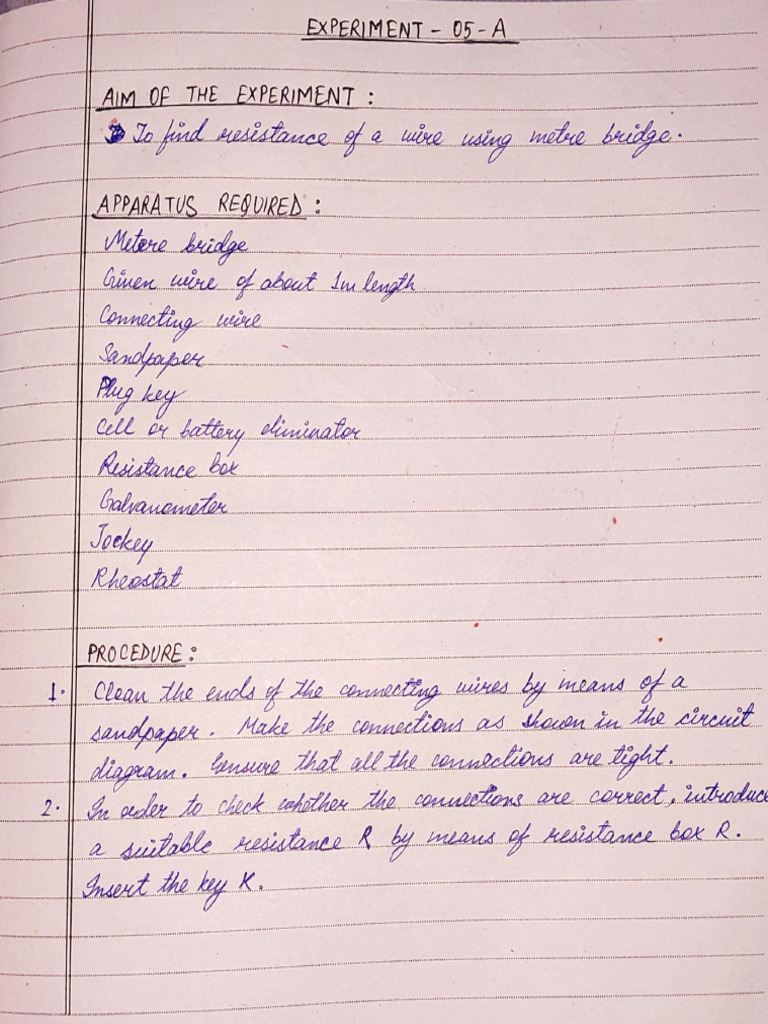 EXPERIMENT - 05 - A
AIM OF THE EXPERIMENT :
To find resistance of a wire using metre bridge.
APPARATUS REQUIRED :
Metere bridge
Given wire of about 1m length
Connecting wire
Sandpaper
Plug key
Cell or battery eliminator
Resistance box
Galvanometer
Jockey
Rheostat
PROCEDURE :
1. Clean the ends of the connecting wires by means of a
sandpaper. Make the connections as shown in the circuit
diagram. Ensure that all the connections are tight.
2. In order to check whether the connections are correct, introduce
a suitable resistance R by means of resistance box R.
Insert the key K.